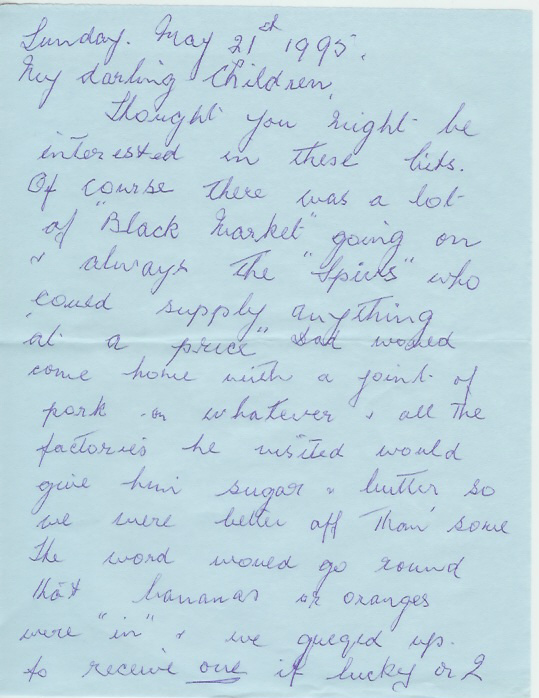 Sunday. May 21st 1995.
My darling Children,
Thought you might be
interested in these bits.
Of course there was a lot
of "Black Market" going on
& always the "Spivs" who
could supply anything
"at a price" Dad would
come home with a joint of
pork or whatever & all the
factories he visited would
give him sugar & butter so
we were better off than some
The word would go round
that bananas or oranges
were "in" & we queued up
to receive one if lucky or 2